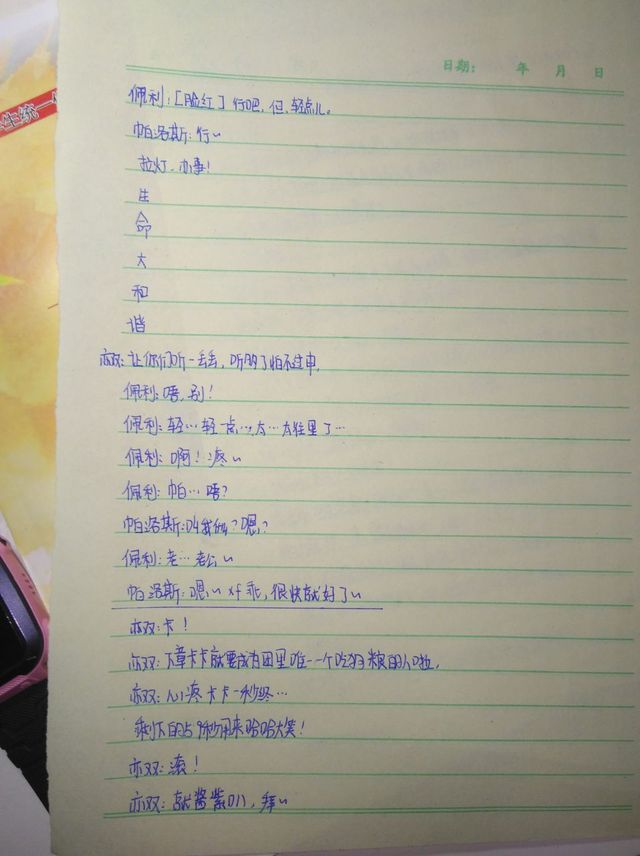 生统一
日期: 年 月 日
佩利:[脸红] 行吧,但,轻点儿。
帕洛斯:行~
拉灯,办事!
生
命
大
和
谐
亦双:让你们听一丢丢,听多了怕不过审,
佩利:唔,别!
佩利:轻…轻点…太…太往里了…
佩利:啊!疼~
佩利:帕…唔?
帕洛斯:叫我什么?嗯?
佩利:老…老公~
帕洛斯:嗯~ xf乖,很快就好了~
亦双:卡!
亦双:下章卡卡就要成为团里唯一一个吃狗粮的人啦,
亦双:心疼卡卡一秒终…
剩下的59秒用来哈哈大笑!
亦双:滚!
亦双:就酱紫叭,拜~